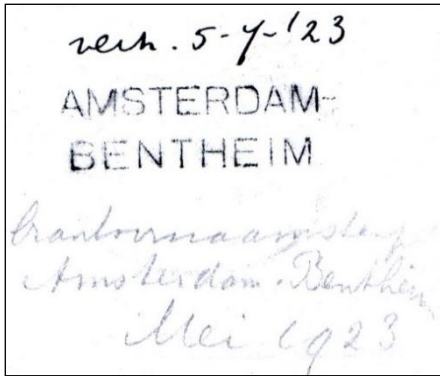 5-7-'23
AMSTERDAM-
BENTHEIM
Amsterdam-Bentheim
Mei 1923